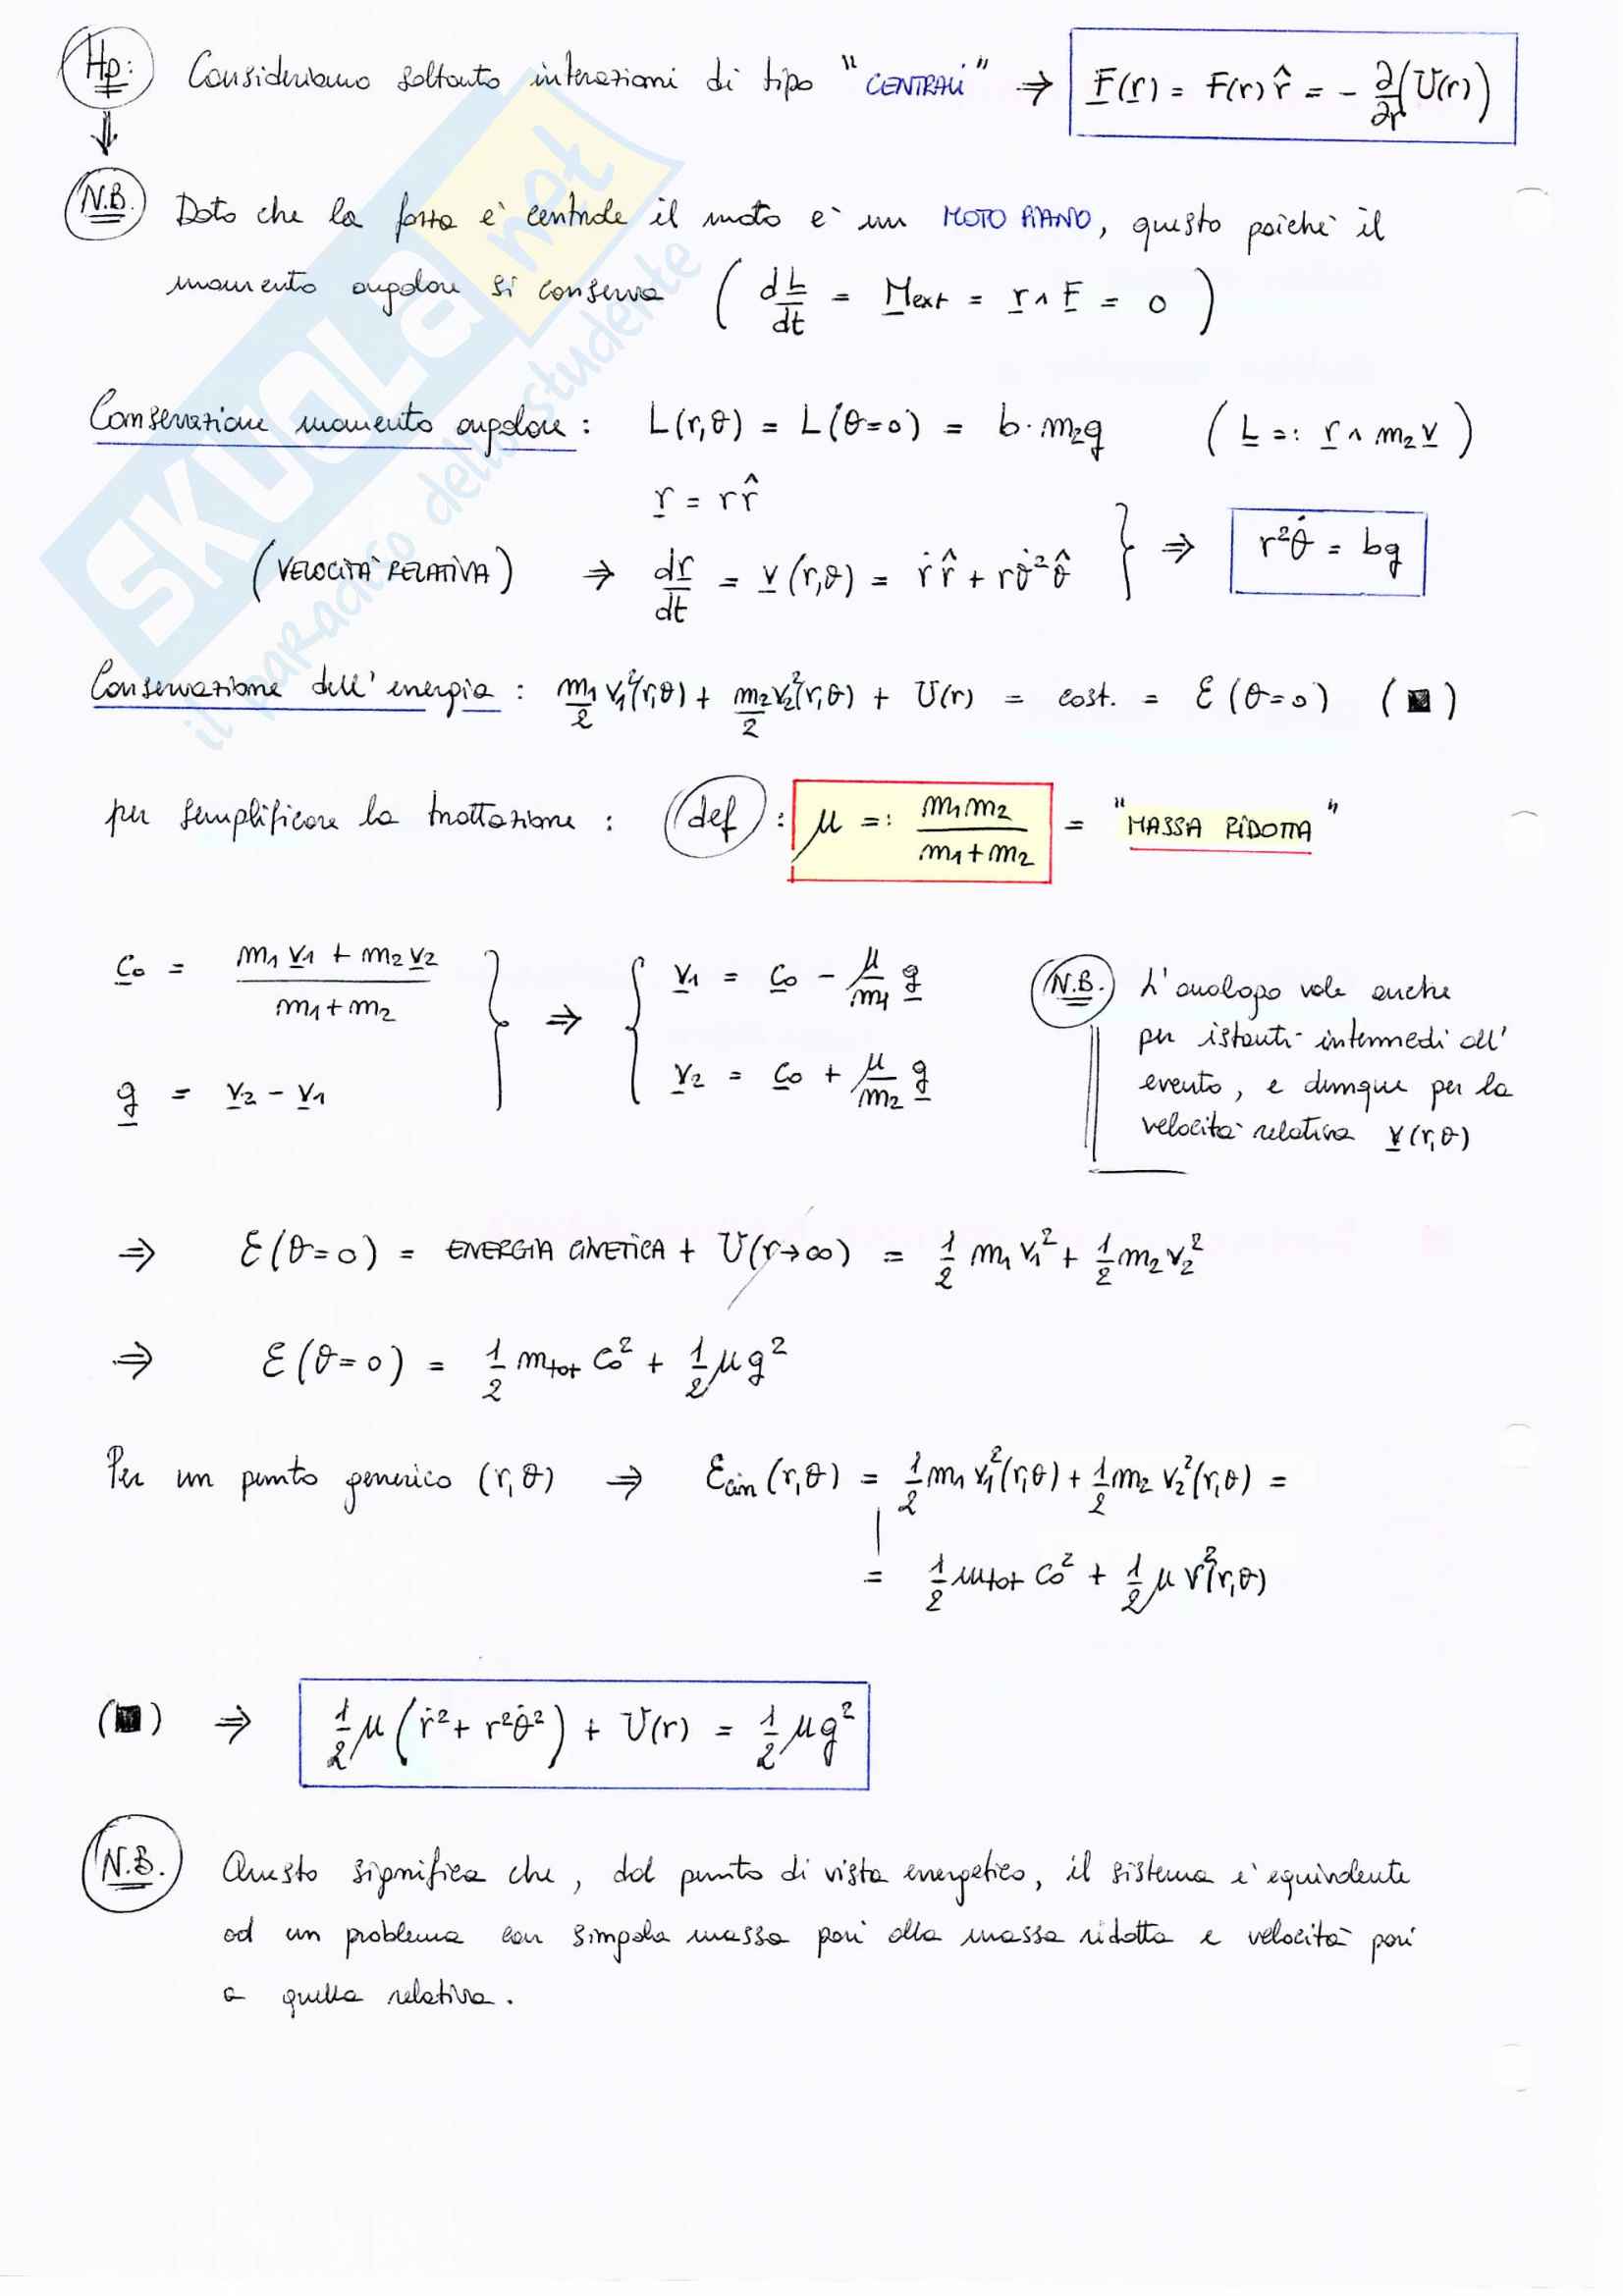 Hp: Consideriamo soltanto interazioni di tipo "CENTRALI" ⇒ F(r) = F(r) r̂ = - ∂/∂r (U(r))
N.B. Dato che la forza è centrale il moto è un MOTO PIANO, questo poichè il
momento angolare si conserva ( dL/dt = Mext = r ∧ F = 0 )
Conservazione momento angolare : L(r,θ) = L(θ=0) = b·m₂g ( L =: r ∧ m₂v )
r = r r̂
(VELOCITÀ RELATIVA) ⇒ dr/dt = v(r,θ) = ṙ r̂ + r θ̇² θ̂ } ⇒ r²θ̇ = bg
Conservazione dell'energia : m₁/2 v₁²(r,θ) + m₂/2 v₂²(r,θ) + U(r) = cost. = ε(θ=0) (■)
per semplificare la trattazione : def : μ =: m₁m₂/(m₁+m₂) = "MASSA RIDOTTA"
c₀ = (m₁v₁ + m₂v₂)/(m₁+m₂)
g = v₂ - v₁
} ⇒ { v₁ = c₀ - μ/m₁ g
v₂ = c₀ + μ/m₂ g
N.B. L'analogo vale anche
per istanti intermedi all'
evento, e dunque per la
velocità relativa v(r,θ)
⇒ ε(θ=0) = ENERGIA CINETICA + U(r→∞) = 1/2 m₁v₁² + 1/2 m₂v₂²
⇒ ε(θ=0) = 1/2 mtot c₀² + 1/2 μg²
Per un punto generico (r,θ) ⇒ εcin(r,θ) = 1/2 m₁v₁²(r,θ) + 1/2 m₂v₂²(r,θ) =
= 1/2 mtot c₀² + 1/2 μ v²(r,θ)
(■) ⇒ 1/2 μ (ṙ² + r²θ̇²) + U(r) = 1/2 μg²
N.B. Questo significa che, dal punto di vista energetico, il sistema è equivalente
ad un problema con singola massa pari alla massa ridotta e velocità pari
a quella relativa.
SKUOLA.net
il paradiso dello studente